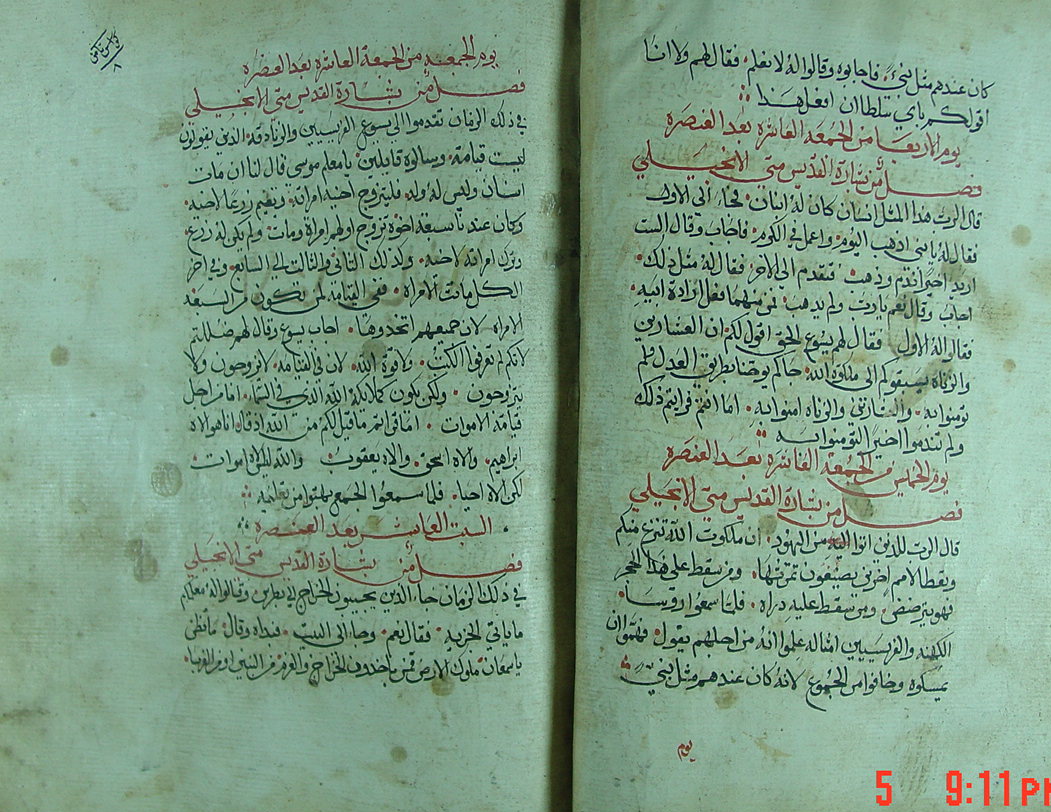 كان عندهم مثل نبي. فاجابوه وقالوا له لا نعلم. فقال لهم ولا انا
اقول لكم باي سلطان افعل هذا
يوم الاربعا من الجمعه العاشره بعد العنصره
فصل من بشارة القديس متى الانجيلي
قال الرب هذا المثل انسان كان له ابنان. فجاء الى الاول
فقال له يا بني اذهب اليوم. واعمل في الكرم. فاجاب وقال لست
اريد اخيرا ندم وذهب. فتقدم الى الاخر. فقال له مثل ذلك.
اجاب وقال نعم يا رب ولم يذهب. فمن منهما فعل ارادة ابيه.
فقالوا له الاول فقال لهم يسوع الحق اقول لكم ان العشارين
والزناه يسبقوكم الى ملكوة الله. جاكم يوحنا بطريق العدل فلم
تومنوا به. والعشارين والزناه امنوا به. اما انتم فرايتم ذلك
ولم تندموا اخيرا لتومنوا به
يوم الخميس من الجمعة العاشره بعد العنصره
فصل من بشارة القديس متى الانجيلي
قال الرب للذين اتوا اليه من اليهود. ان ملكوت الله تنزع منكم
ويعطا لامم اخرين يصنعون ثمرتها. ومن سقط على هذا الحجر
فهو يترضض. ومن سقط عليه ذراه. فلما سمعوا روسا
الكهنه والفريسيين امثاله علموا انه من اجلهم يقول. فهموا ان
يمسكوه وخافوا من الجموع لانه كان عندهم مثل نبي
يوم
يوم الجمعه من الجمعة العاشره بعد العنصره
فصل من بشارة القديس متى الانجيلي
في ذلك الزمان تقدموا الى يسوع الفريسيين والزنادقه الذين يقولون
ليست قيامة. وسالوه قايلين. يا معلم موسى قال لنا ان مات
انسان وليس له ولد. فليتزوج اخه امراته. ويقيم زرعا لاخيه.
وكان عندنا سبعة اخوة تزوج اولهم امراة ومات ولم يكن له زرع.
وترك امراته لاخيه. وكذلك الثاني والثالث الى السابع. وفي اخر
الكل ماتت الامراه. ففي القيامة لمن تكون من السبعة
الامراه لان جميعهم اتخذوها. اجاب يسوع وقال لهم ضللتم
لانكم لم تعرفوا الكتب. ولا قوة الله. لان في القيامه. لا يزوجون ولا
يتزوجون. ولكن يكون كملائكة الله الذين في السماء. اما من اجل
قيامة الاموات. اما قراتم ما قيل لكم من الله اذ قال انا هو الاه
ابراهيم. والاه اسحق. والاه يعقوب. والله ليس اله اموات
لكن الاه احيا. فلما سمعوا الجمع بهتوا من تعليمه
السبت العاشر بعد العنصره
فصل من بشارة القديس متى الانجيلي
في ذلك الزمان جاء الذين يجيبون الخراج الى بطرس وقالوا له معلمكم
ما ياتي الجزيه. فقال نعم. وجا الى البيت. فبداه وقال ما تظن
يا سمعان. ملوك الارض ممن ياخذون الخراج والغرم من البنين ام من الغربا.
5 9:11 PM